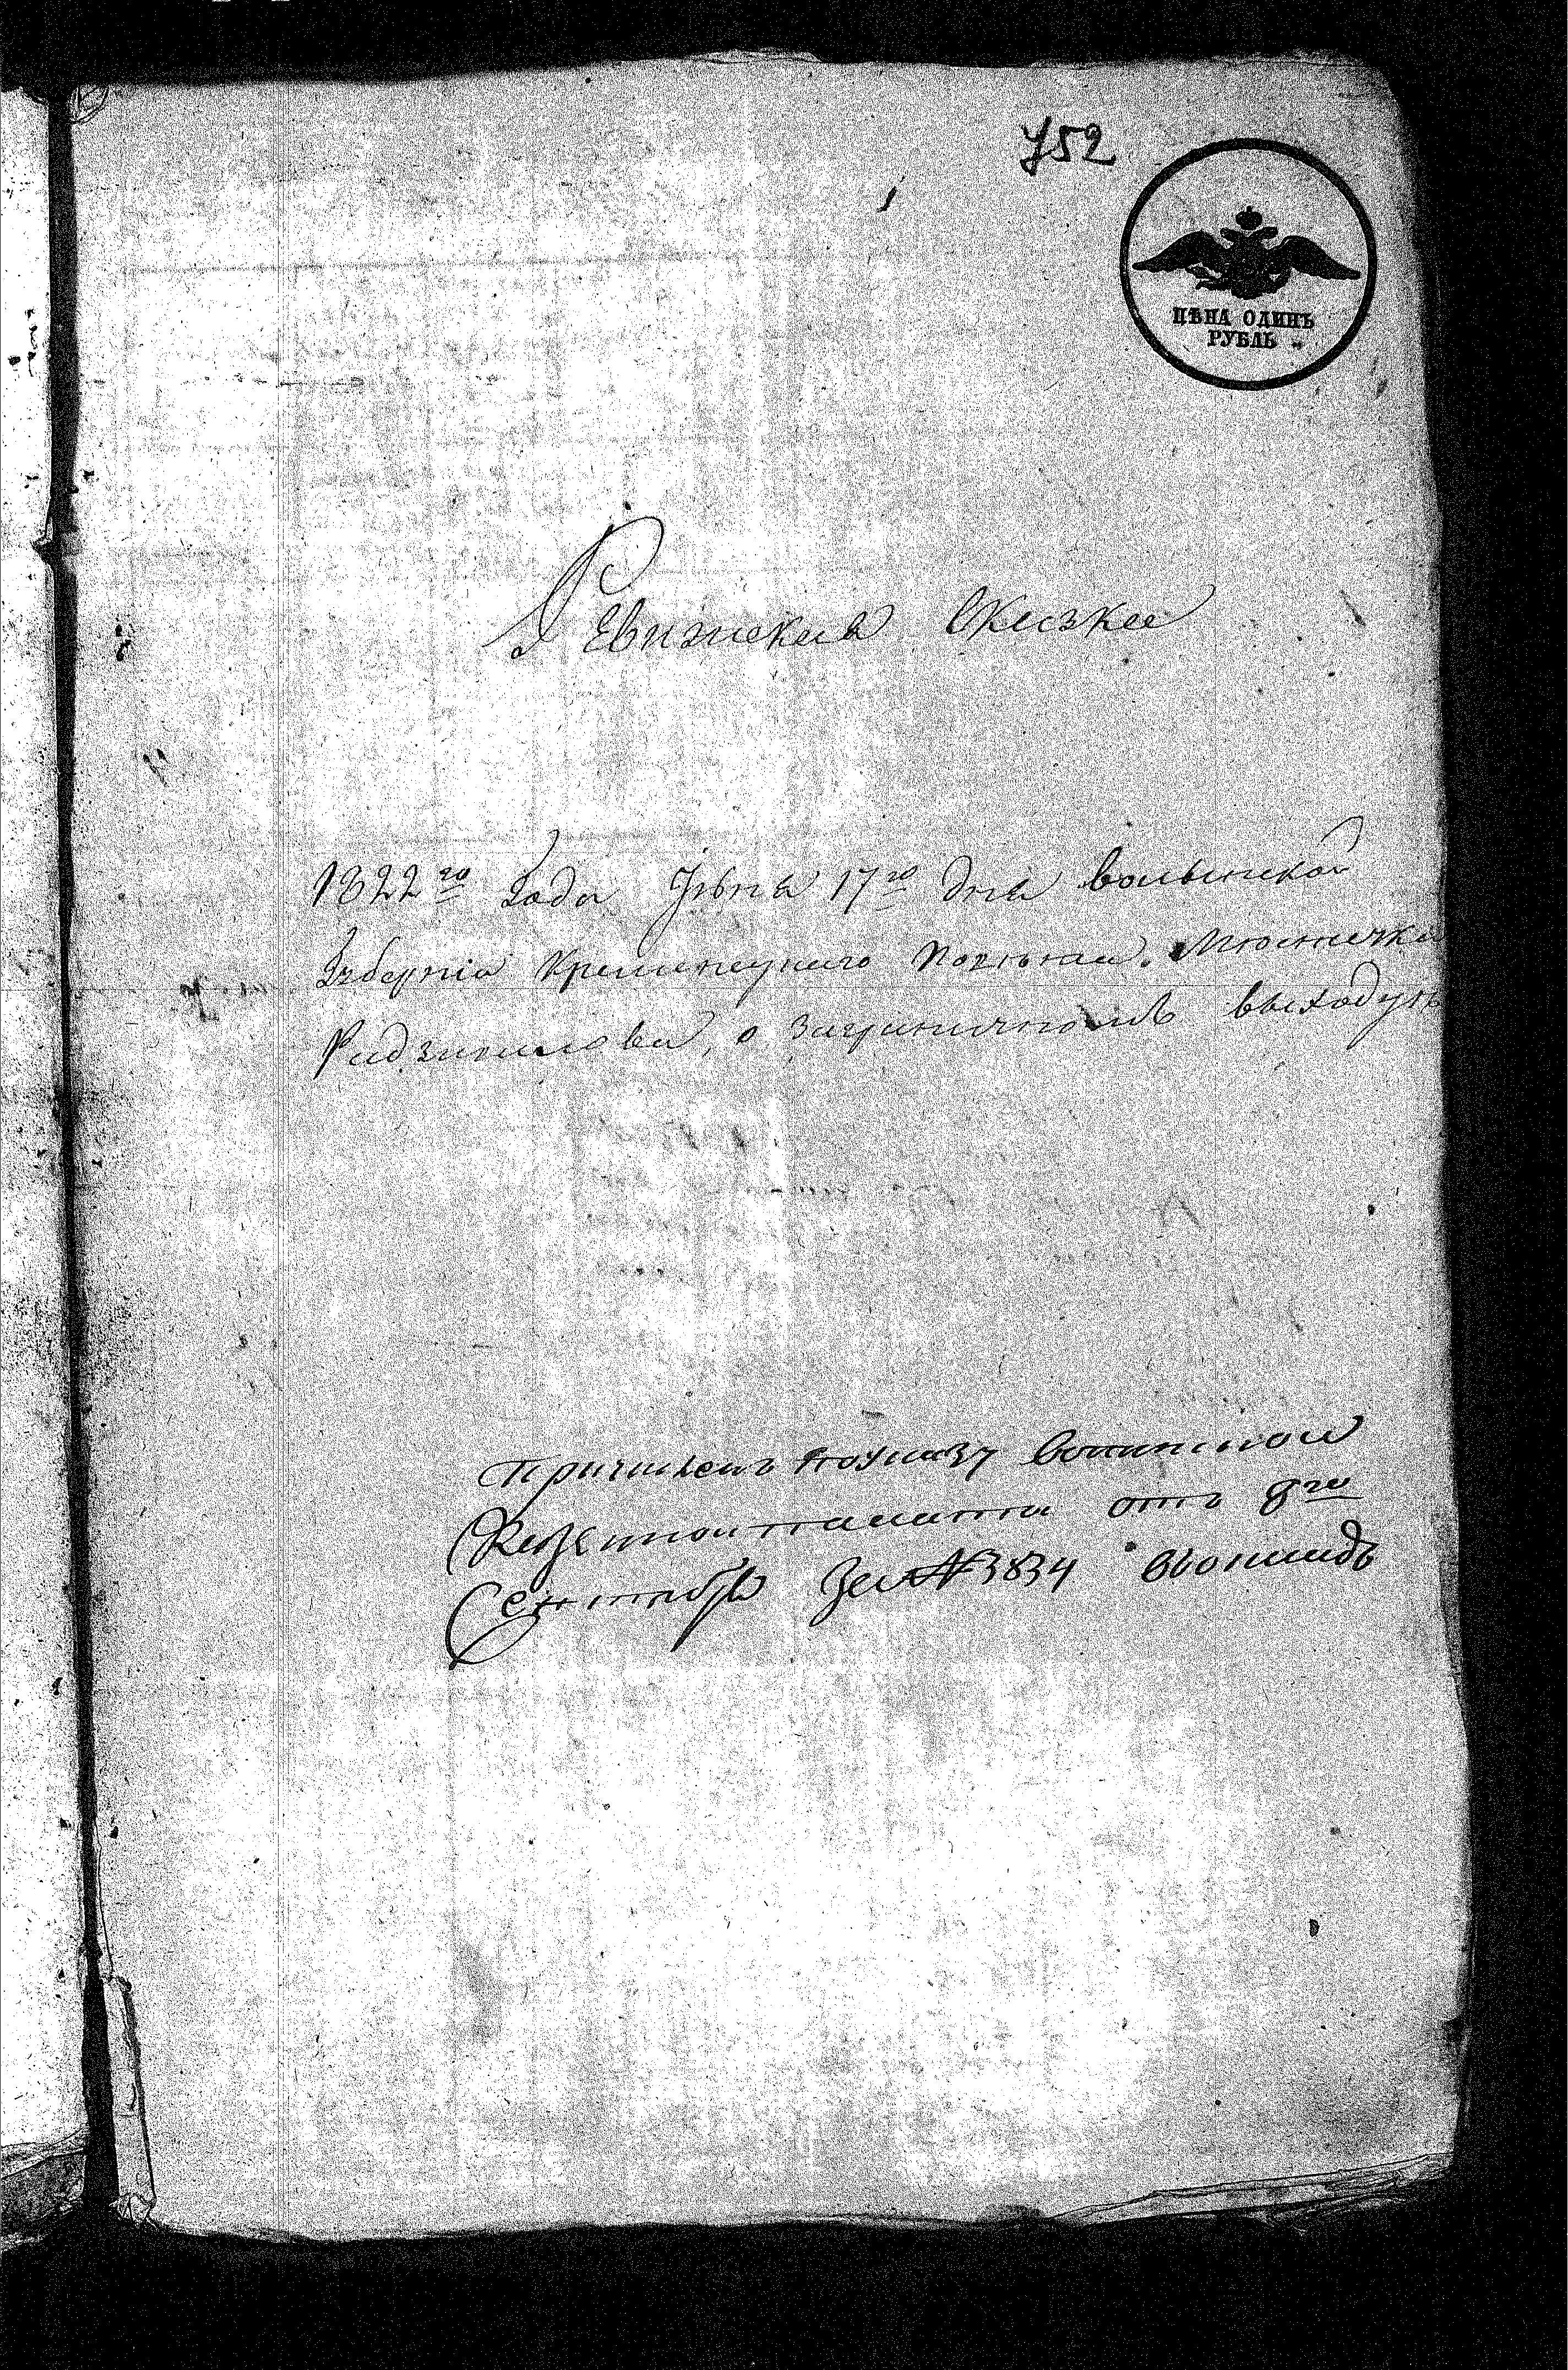 752
ЦѢНА ОДИНЪ
РУБЛЬ
Ревизская Сказка
1822го Года Іюня 17го дня волынской
Губерніи Кременецкаго Повѣта Местечка
Радзивилова, о заграничномъ выходцѣ
причисленъ поуказу волынской
Казенной палаты отъ 8го
Сентября За №3834